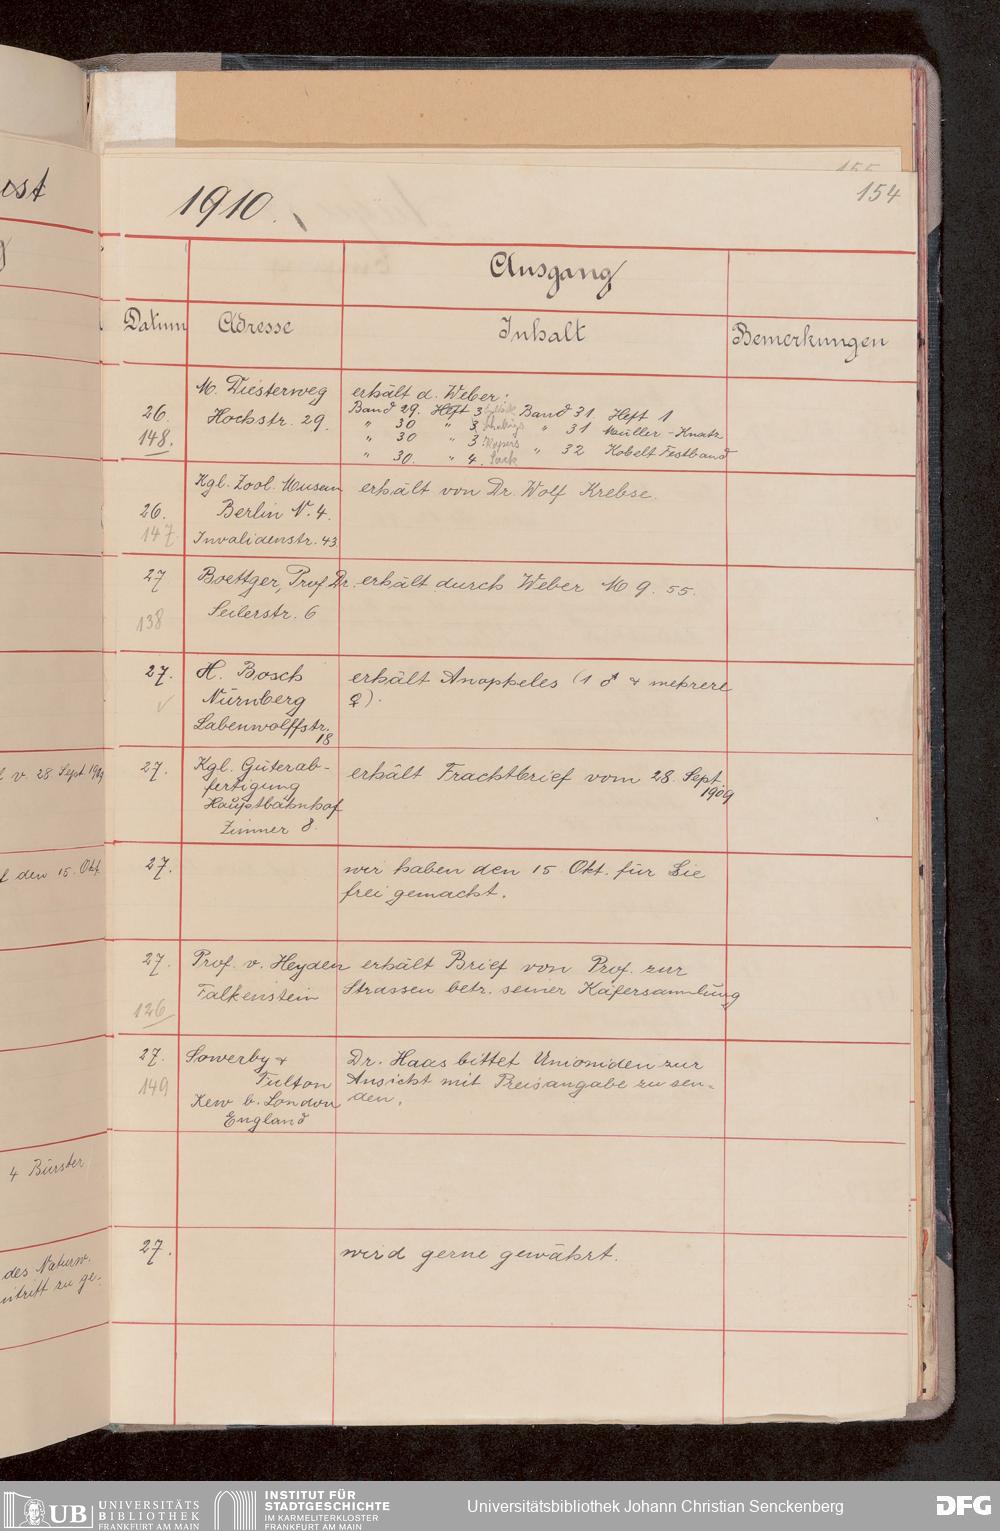 ost
1910.
154
155
Ausgang
Datum
Adresse
Inhalt
Bemerkungen
M. Diesterweg
erhält d. Weber:
26.
Hochstr. 29.
Band 29. Heft 3
Band 31. Heft 1
" 30 " 3
" 31 Müller-Knatz
148.
" 30 " 3
" 32 Kobelt Festband
" 30. " 4. Sack
Kgl. Zool. Museum
erhält von Dr. Wolf Krebse.
26.
Berlin N. 4.
147
Invalidenstr. 43
27
Boettger, Prof. Dr.
erhält durch Weber M 9. 55.
138
Seilerstr. 6
27.
H. Bosch
erhält Anopheles (1 ♂ & mehrere
Nürnberg
♀).
Labenwolffstr.
18
27.
Kgl. Güterab-
erhält Frachtbrief vom 28. Sept.
fertigung
1909
Hauptbahnhof
Zimmer 8.
l v. 28 Sept. 1909
27.
wir haben den 15. Okt. für Sie
frei gemacht.
f den 15. Okt.
27.
Prof. v. Heyden
erhält Brief von Prof. zur
Falkenstein
Strassen betr. seiner Käfersammlung
126
27.
Sowerby &
Dr. Haas bittet Unioniden zur
149
Fulton
Ansicht mit Preisangabe zu sen-
Kew b. London
den.
England
4 Bürsten
27.
wird gerne gewährt.
des Naturw.
intritt zu ge-
UB
UNIVERSITÄTS
BIBLIOTHEK
FRANKFURT AM MAIN
INSTITUT FÜR
STADTGESCHICHTE
IM KARMELITERKLOSTER
FRANKFURT AM MAIN
Universitätsbibliothek Johann Christian Senckenberg
DFG